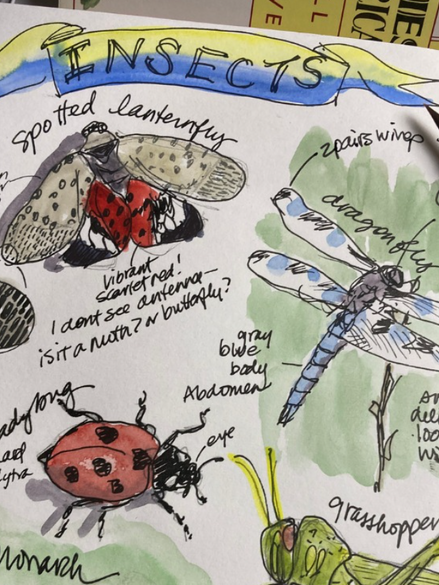 INSECTS
spotted lanternfly
2 pairs wings
dragonfly
vibrant
scarlet red!
I dont see antenna—
is it a moth? or butterfly?
gray
blue
body
Abdomen
ladybug
eye
grasshopper
Monarch